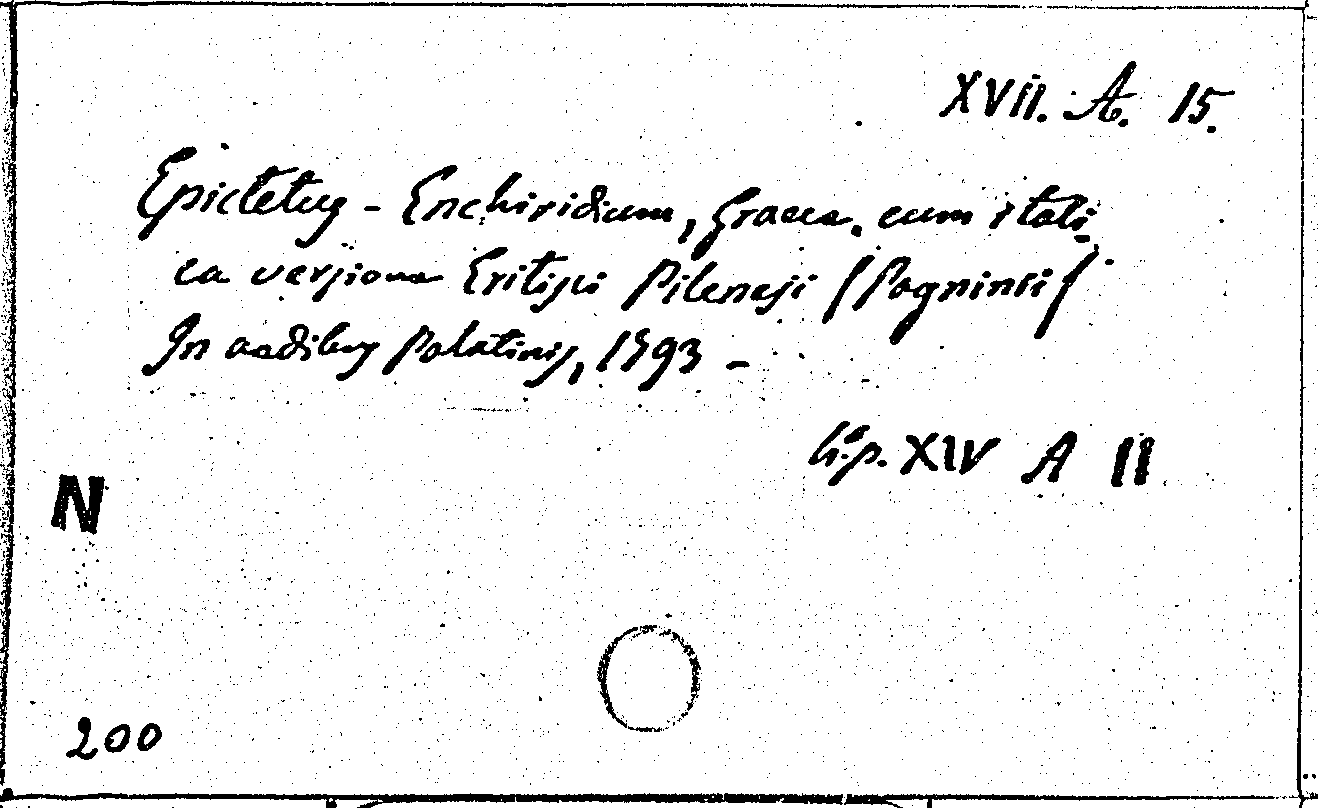 XVII. A. 15.
Epictetus - Enchiridium, Graece, cum itali-
ca versione Eritisci Pilenesi (Pagninii).
In aedibus Palatinis, 1793 -
XIV A II
N
200